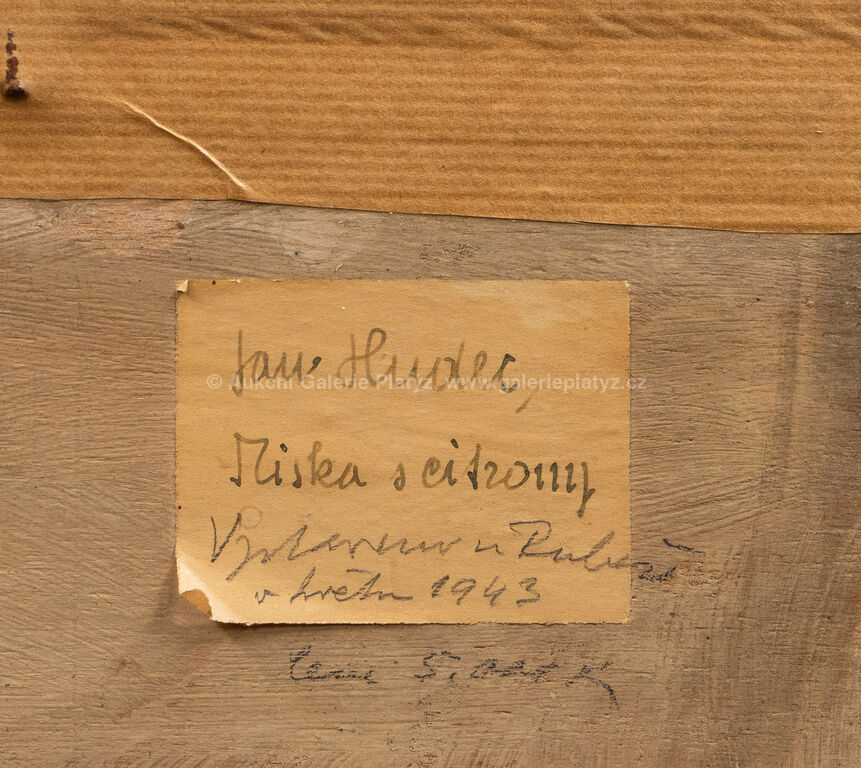 Jan Hudec,
© Aukční Galerie Platýz, www.galerieplatyz.cz
Miska s citrony
Vystaveno u Rubeše
v květnu 1943
cena 5.000 K